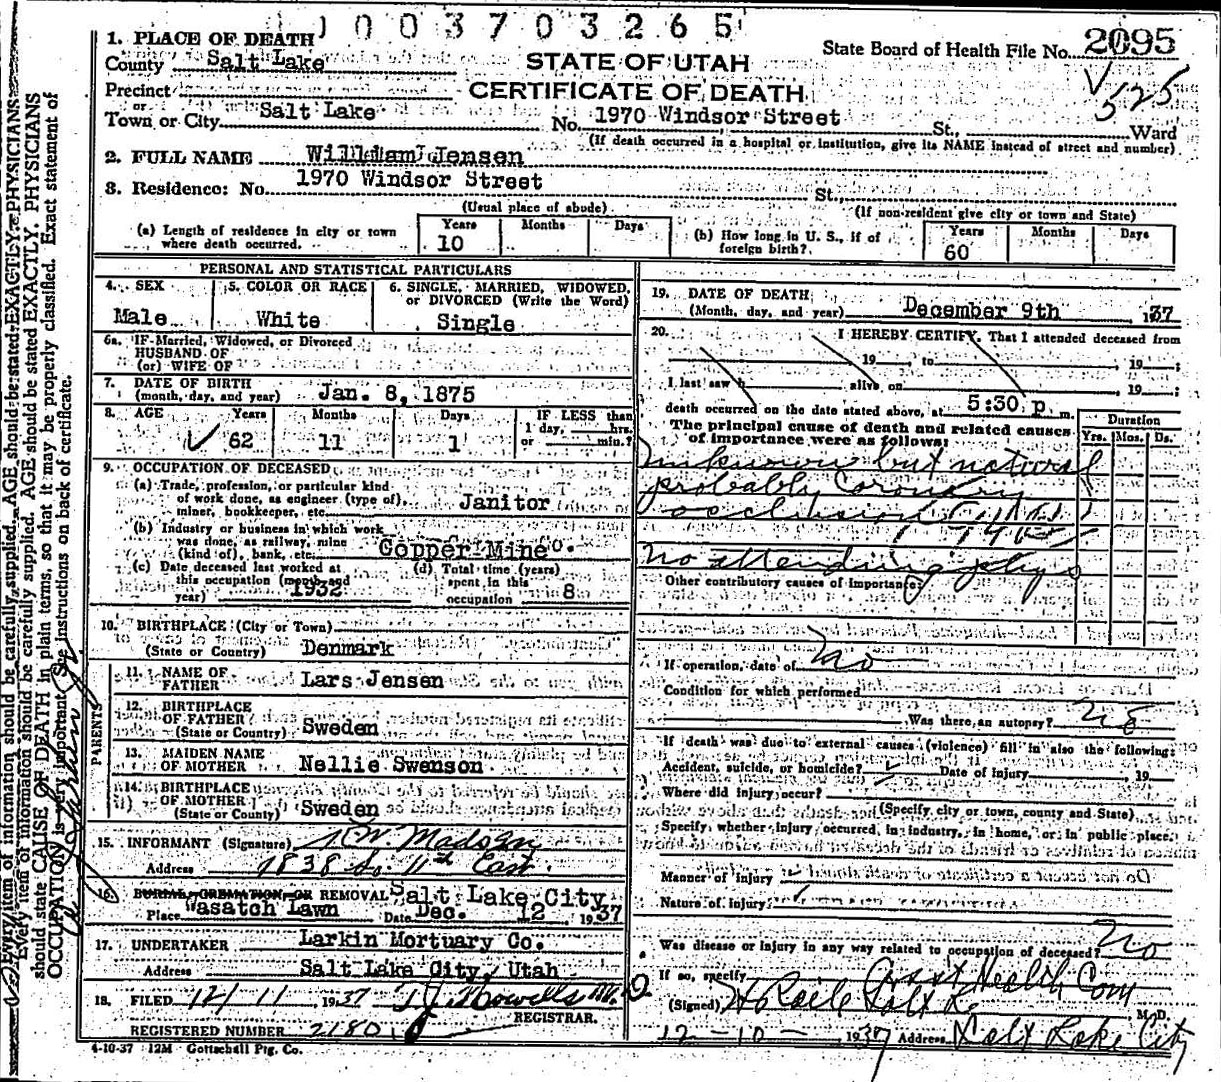 1003703265
State Board of Health File No. 2095
1. PLACE OF DEATH
County Salt Lake
STATE OF UTAH
CERTIFICATE OF DEATH
V 525
Precinct
or
Town or City Salt Lake No. 1970 Windsor Street St., Ward
(If death occurred in a hospital or institution, give its NAME instead of street and number)
2. FULL NAME William Jensen
3. Residence: No. 1970 Windsor Street St.,
(Usual place of abode) (If non-resident give city or town and State)
(a) Length of residence in city or town where death occurred. Years 10 Months Days
(b) How long in U. S., if of foreign birth? Years 60 Months Days
PERSONAL AND STATISTICAL PARTICULARS
4. SEX Male
5. COLOR OR RACE White
6. SINGLE, MARRIED, WIDOWED, or DIVORCED (Write the Word) Single
6a. IF Married, Widowed, or Divorced
HUSBAND OF
(or) WIFE OF
7. DATE OF BIRTH
(month, day, and year) Jan. 8, 1875
8. AGE Years 62 Months 11 Days 1 IF LESS than 1 day, hrs. or min.?
9. OCCUPATION OF DECEASED
(a) Trade, profession, or particular kind
of work done, as engineer (type of),
miner, bookkeeper, etc. Janitor
(b) Industry or business in which work
was done, as railway, mine
(kind of), bank, etc. Copper Mine
(c) Date deceased last worked at
this occupation (month and
year) 1932
(d) Total time (years)
spent in this
occupation 8
10. BIRTHPLACE (City or Town)
(State or Country) Denmark
PARENTS
11. NAME OF
FATHER Lars Jensen
12. BIRTHPLACE
OF FATHER
(State or Country) Sweden
13. MAIDEN NAME
OF MOTHER Nellie Swenson
14. BIRTHPLACE
OF MOTHER
(State or Country) Sweden
15. INFORMANT (Signature) Madsen
Address 1838 So. 11th East.
16. BURIAL, CREMATION, OR REMOVAL Salt Lake City
Place Wasatch Lawn Date Dec. 12 1937
17. UNDERTAKER Larkin Mortuary Co.
Address Salt Lake City, Utah
18. FILED 12/11 1937 T. J. Howells M.D.
REGISTRAR.
REGISTERED NUMBER 2180
4-10-37 12M Gottschall Ptg. Co.
19. DATE OF DEATH
(Month, day, and year) December 9th 1937
20. I HEREBY CERTIFY, That I attended deceased from
19 to 19 ;
I last saw h alive on 19 ;
death occurred on the date stated above, at 5:30 p. m.
The principal cause of death and related causes
of importance were as follows:
Duration
Yrs. Mos. Ds.
Unknown but natural
probably coronary
occlusion
No attending phys
Other contributory causes of importance:
If operation, date of No
Condition for which performed
Was there an autopsy? No
If death was due to external causes (violence) fill in also the following:
Accident, suicide, or homicide? Date of injury 19
Where did injury occur?
(Specify city or town, county and State)
Specify whether injury occurred in industry, in home, or in public place.
Manner of injury
Nature of injury
Was disease or injury in any way related to occupation of deceased? No
If so, specify Asst Health Com
(Signed) M.D.
12 - 10 - 1937 Address Salt Lake City
Every item of information should be carefully supplied. AGE should be stated EXACTLY. PHYSICIANS
should state CAUSE OF DEATH in plain terms, so that it may be properly classified. Exact statement of
OCCUPATION is very important. See instructions on back of certificate.